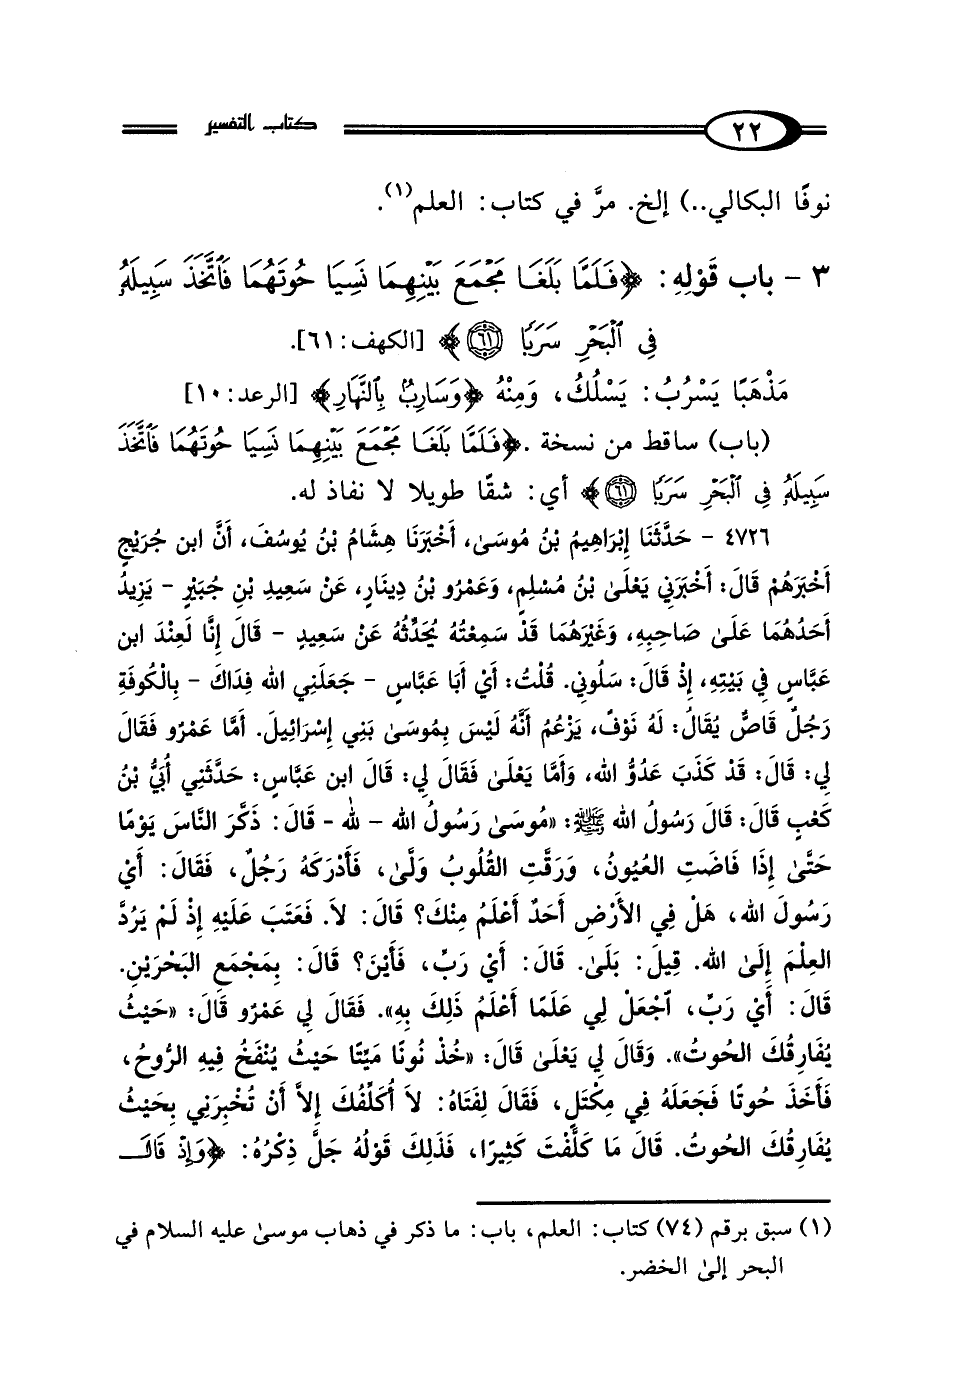 ٢٢ كتاب التفسير
نوفًا البكالي..) إلخ. مرَّ في كتاب: العلم(١).
٣ - باب قَوْلِهِ: ﴿فَلَمَّا بَلَغَا مَجْمَعَ بَيْنِهِمَا نَسِيَا حُوتَهُمَا فَٱتَّخَذَ سَبِيلَهُۥ
فِي ٱلْبَحْرِ سَرَبًا ٦١﴾ [الكهف: ٦١].
مَذْهَبًا يَسْرُبُ: يَسْلُكُ، وَمِنْهُ ﴿وَسَارِبٌۢ بِٱلنَّهَارِ﴾ [الرعد: ١٠]
(باب) ساقط من نسخة .﴿فَلَمَّا بَلَغَا مَجْمَعَ بَيْنِهِمَا نَسِيَا حُوتَهُمَا فَٱتَّخَذَ
سَبِيلَهُۥ فِي ٱلْبَحْرِ سَرَبًا ٦١﴾ أي: شقًا طويلا لا نفاذ له.
٤٧٢٦ - حَدَّثَنَا إِبْرَاهِيمُ بْنُ مُوسَىٰ، أَخْبَرَنَا هِشَامُ بْنُ يُوسُفَ، أَنَّ ابن جُرَيْجٍ
أَخْبَرَهُمْ قَالَ: أَخْبَرَنِي يَعْلَىٰ بْنُ مُسْلِمٍ، وَعَمْرُو بْنُ دِينَارٍ، عَنْ سَعِيدِ بْنِ جُبَيْرٍ - يَزِيدُ
أَحَدُهُمَا عَلَىٰ صَاحِبِهِ، وَغَيْرَهُمَا قَدْ سَمِعْتُهُ يُحَدِّثُهُ عَنْ سَعِيدٍ - قَالَ إِنَّا لَعِنْدَ ابن
عَبَّاسٍ فِي بَيْتِهِ، إِذْ قَالَ: سَلُونِي. قُلْتُ: أَيْ أَبَا عَبَّاسٍ - جَعَلَنِي الله فِدَاكَ - بِالْكُوفَةِ
رَجُلٌ قَاصٌّ يُقَالُ: لَهُ نَوْفٌ، يَزْعُمُ أَنَّهُ لَيْسَ بِمُوسَىٰ بَنِي إِسْرَائِيلَ. أَمَّا عَمْرٌو فَقَالَ
لِي: قَالَ: قَدْ كَذَبَ عَدُوُّ الله، وَأَمَّا يَعْلَىٰ فَقَالَ لِي: قَالَ ابن عَبَّاسٍ: حَدَّثَنِي أُبَيُّ بْنُ
كَعْبٍ قَالَ: قَالَ رَسُولُ الله ﷺ: «مُوسَىٰ رَسُولُ الله - لله - قَالَ: ذَكَّرَ النَّاسَ يَوْمًا
حَتَّىٰ إِذَا فَاضَتِ العُيُونُ، وَرَقَّتِ القُلُوبُ وَلَّىٰ، فَأَدْرَكَهُ رَجُلٌ، فَقَالَ: أَيْ
رَسُولَ الله، هَلْ فِي الأَرْضِ أَحَدٌ أَعْلَمُ مِنْكَ؟ قَالَ: لاَ. فَعَتَبَ عَلَيْهِ إِذْ لَمْ يَرُدَّ
العِلْمَ إِلَىٰ الله. قِيلَ: بَلَىٰ. قَالَ: أَيْ رَبِّ، فَأَيْنَ؟ قَالَ: بِمَجْمَعِ البَحْرَيْنِ.
قَالَ: أَيْ رَبِّ، ٱجْعَلْ لِي عَلَمًا أَعْلَمُ ذَلِكَ بِهِ». فَقَالَ لِي عَمْرٌو قَالَ: «حَيْثُ
يُفَارِقُكَ الحُوتُ». وَقَالَ لِي يَعْلَىٰ قَالَ: «خُذْ نُونًا مَيِّتًا حَيْثُ يُنْفَخُ فِيهِ الرُّوحُ،
فَأَخَذَ حُوتًا فَجَعَلَهُ فِي مِكْتَلٍ، فَقَالَ لِفَتَاهُ: لاَ أُكَلِّفُكَ إِلاَّ أَنْ تُخْبِرَنِي بِحَيْثُ
يُفَارِقُكَ الحُوتُ. قَالَ مَا كَلَّفْتَ كَثِيرًا، فَذَلِكَ قَوْلُهُ جَلَّ ذِكْرُهُ: ﴿وَإِذْ قَالَ
(١) سبق برقم (٧٤) كتاب: العلم، باب: ما ذكر في ذهاب موسىٰ عليه السلام في
البحر إلىٰ الخضر.